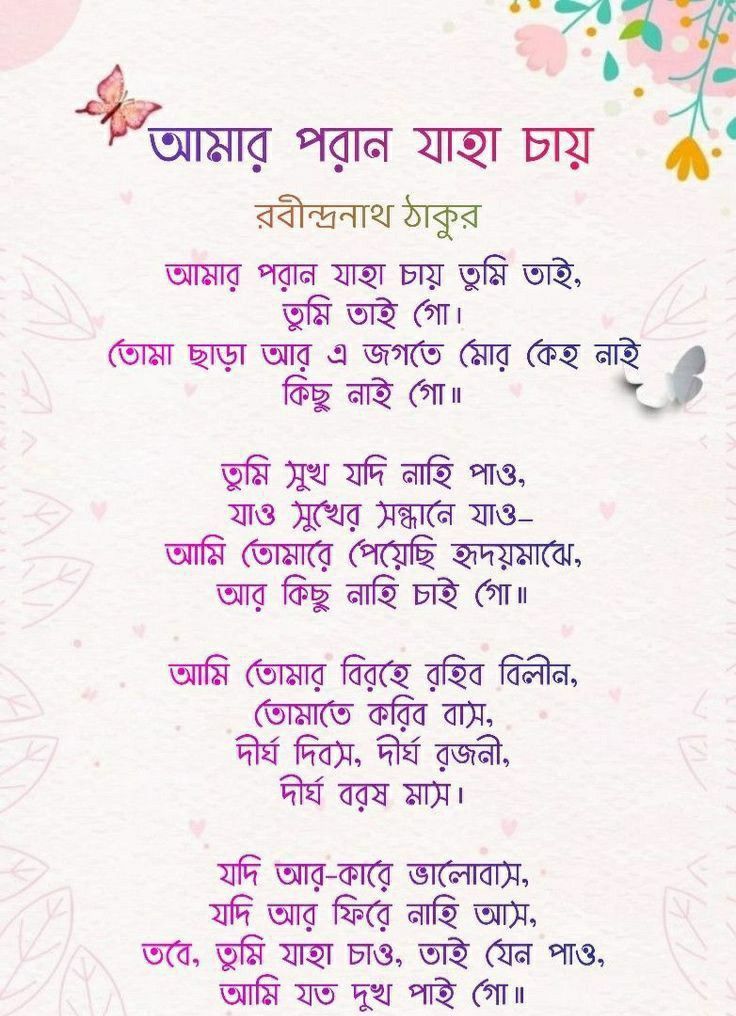 আমার পরান যাহা চায়
রবীন্দ্রনাথ ঠাকুর
আমার পরান যাহা চায় তুমি তাই,
তুমি তাই গো।
তোমা ছাড়া আর এ জগতে মোর কেহ নাই
কিছু নাই গো॥
তুমি সুখ যদি নাহি পাও,
যাও সুখের সন্ধানে যাও–
আমি তোমারে পেয়েছি হৃদয়মাঝে,
আর কিছু নাহি চাই গো॥
আমি তোমার বিরহে রহিব বিলীন,
তোমাতে করিব বাস,
দীর্ঘ দিবস, দীর্ঘ রজনী,
দীর্ঘ বরষ মাস।
যদি আর-কারে ভালোবাস,
যদি আর ফিরে নাহি আস,
তবে, তুমি যাহা চাও, তাই যেন পাও,
আমি যত দুখ পাই গো॥